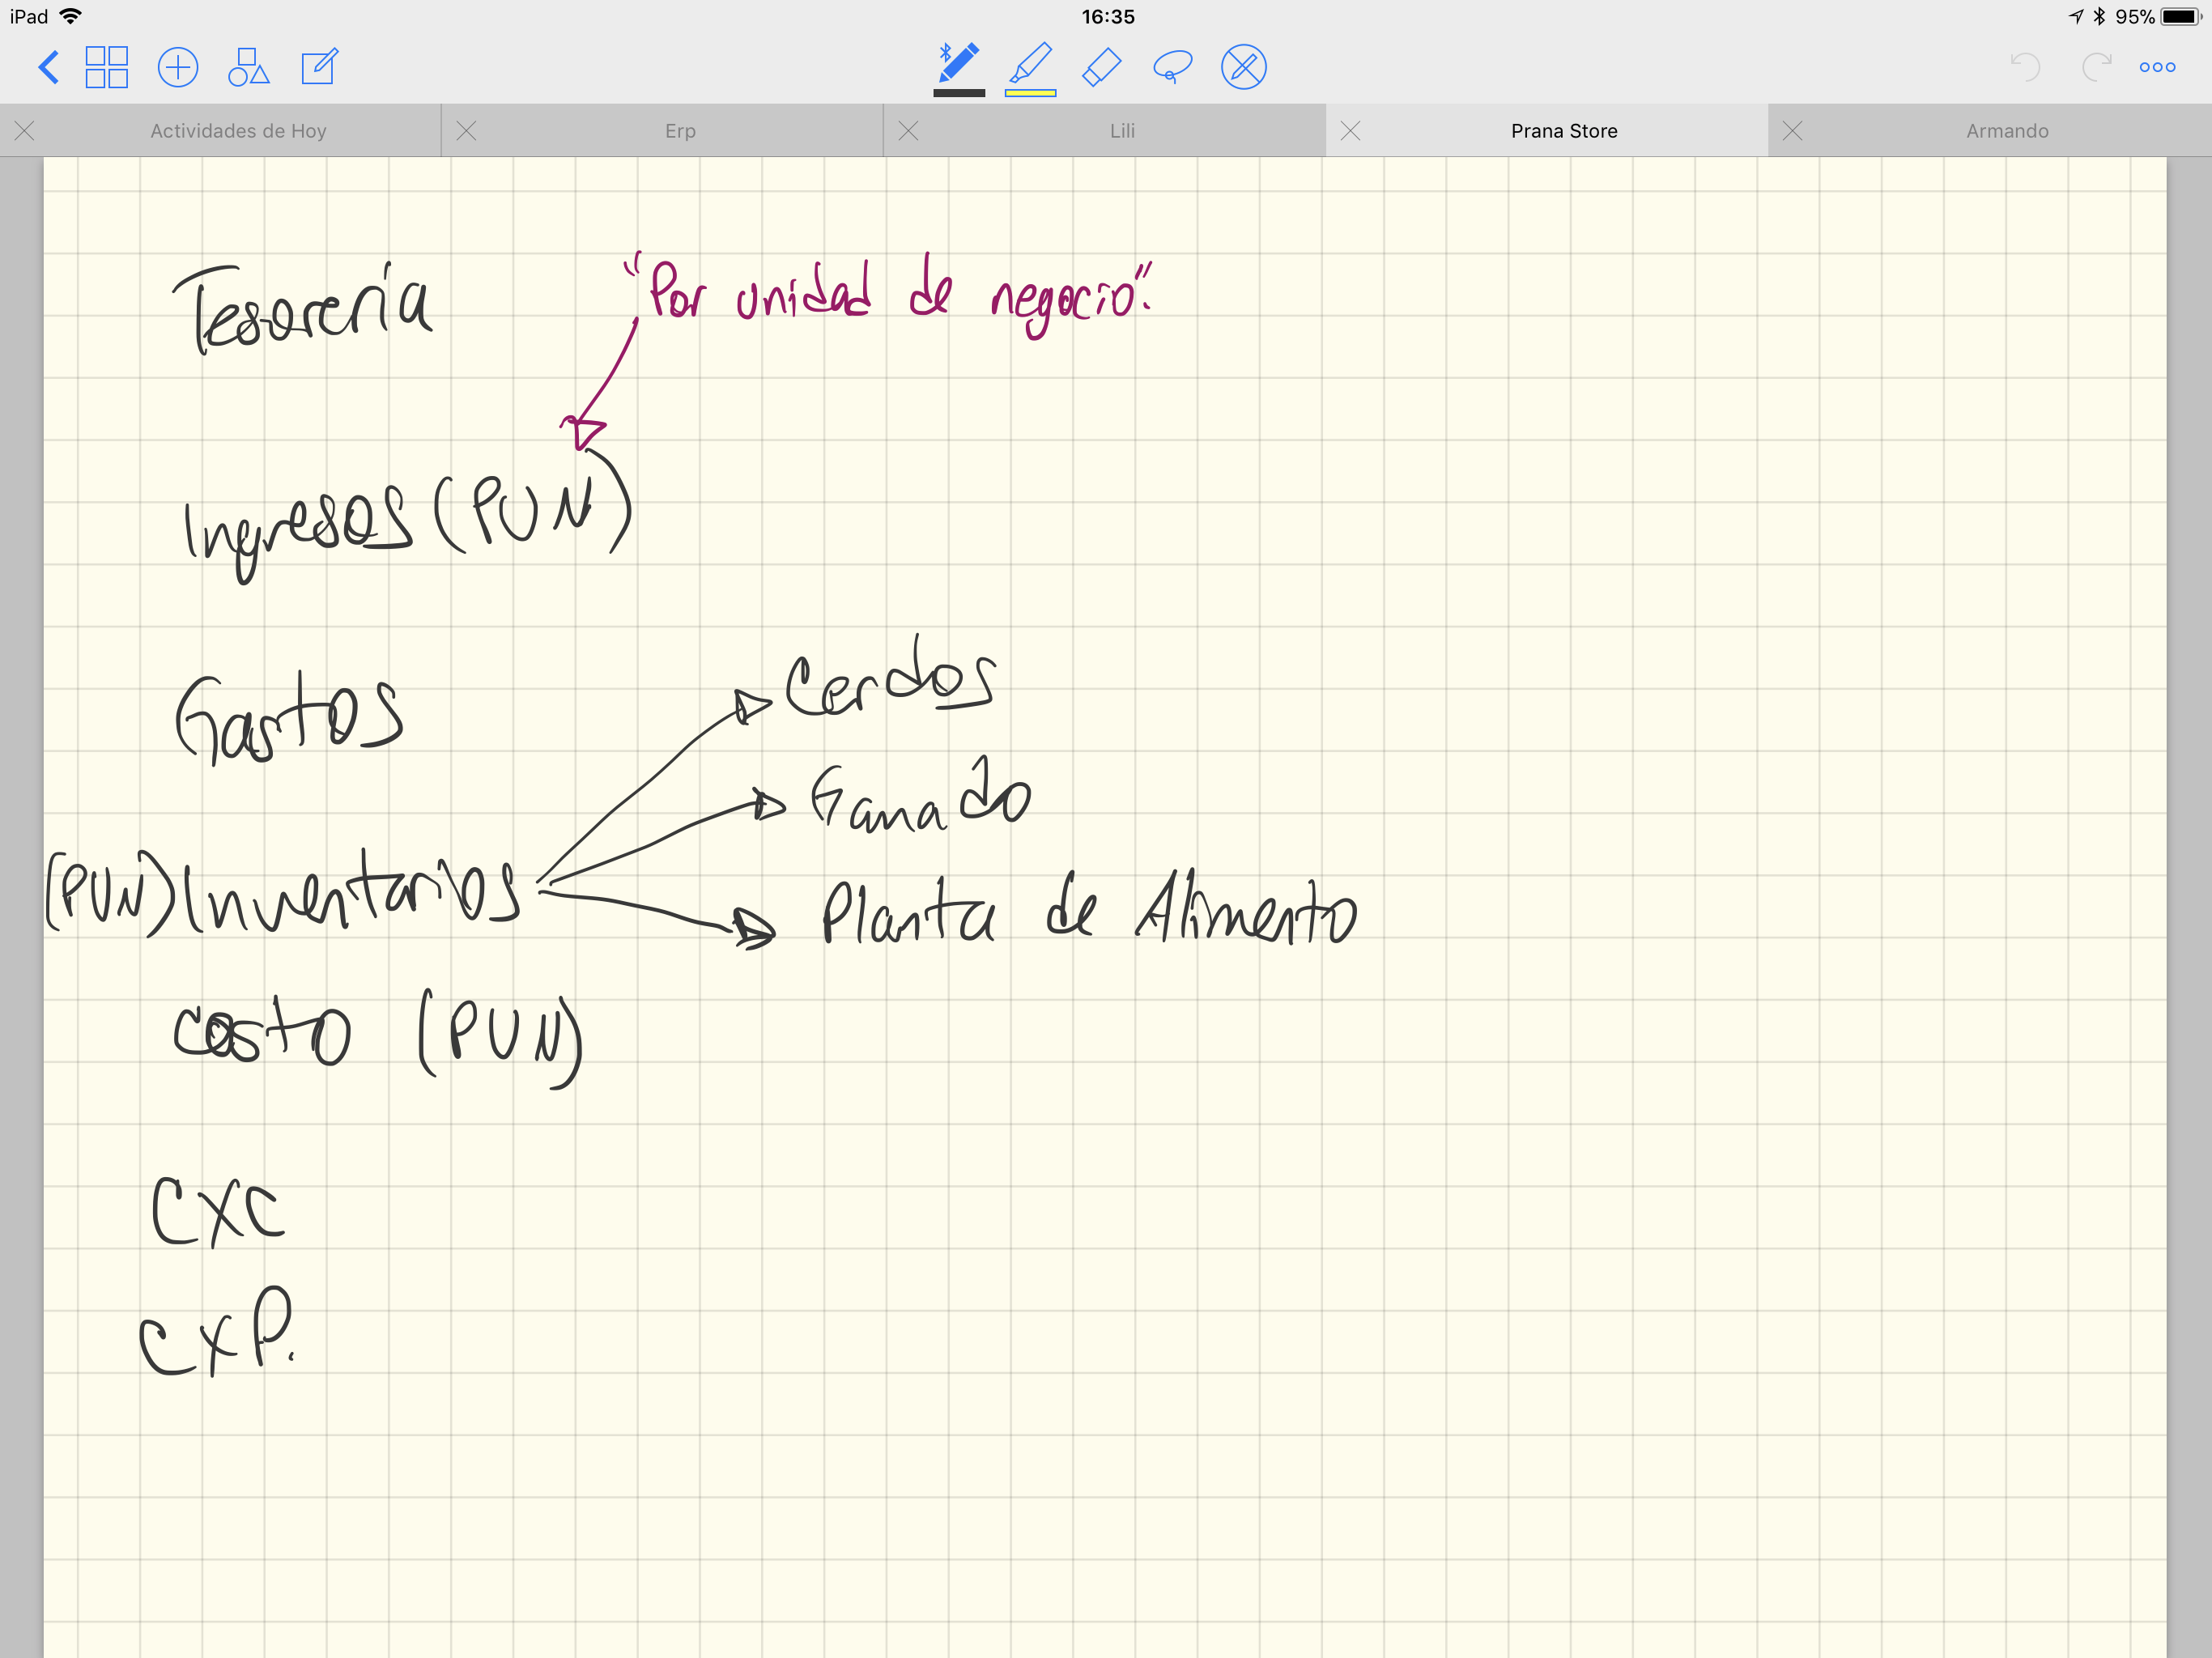 iPad 16:35 95%
Actividades de Hoy Erp Lili Prana Store Armando
Tesorería "Por unidad de negocio".
Ingresos (PUN)
Gastos
Cerdos
Ganado
(PUN) Inventarios
Planta de Alimento
Costo (PUN)
CXC
CXP.